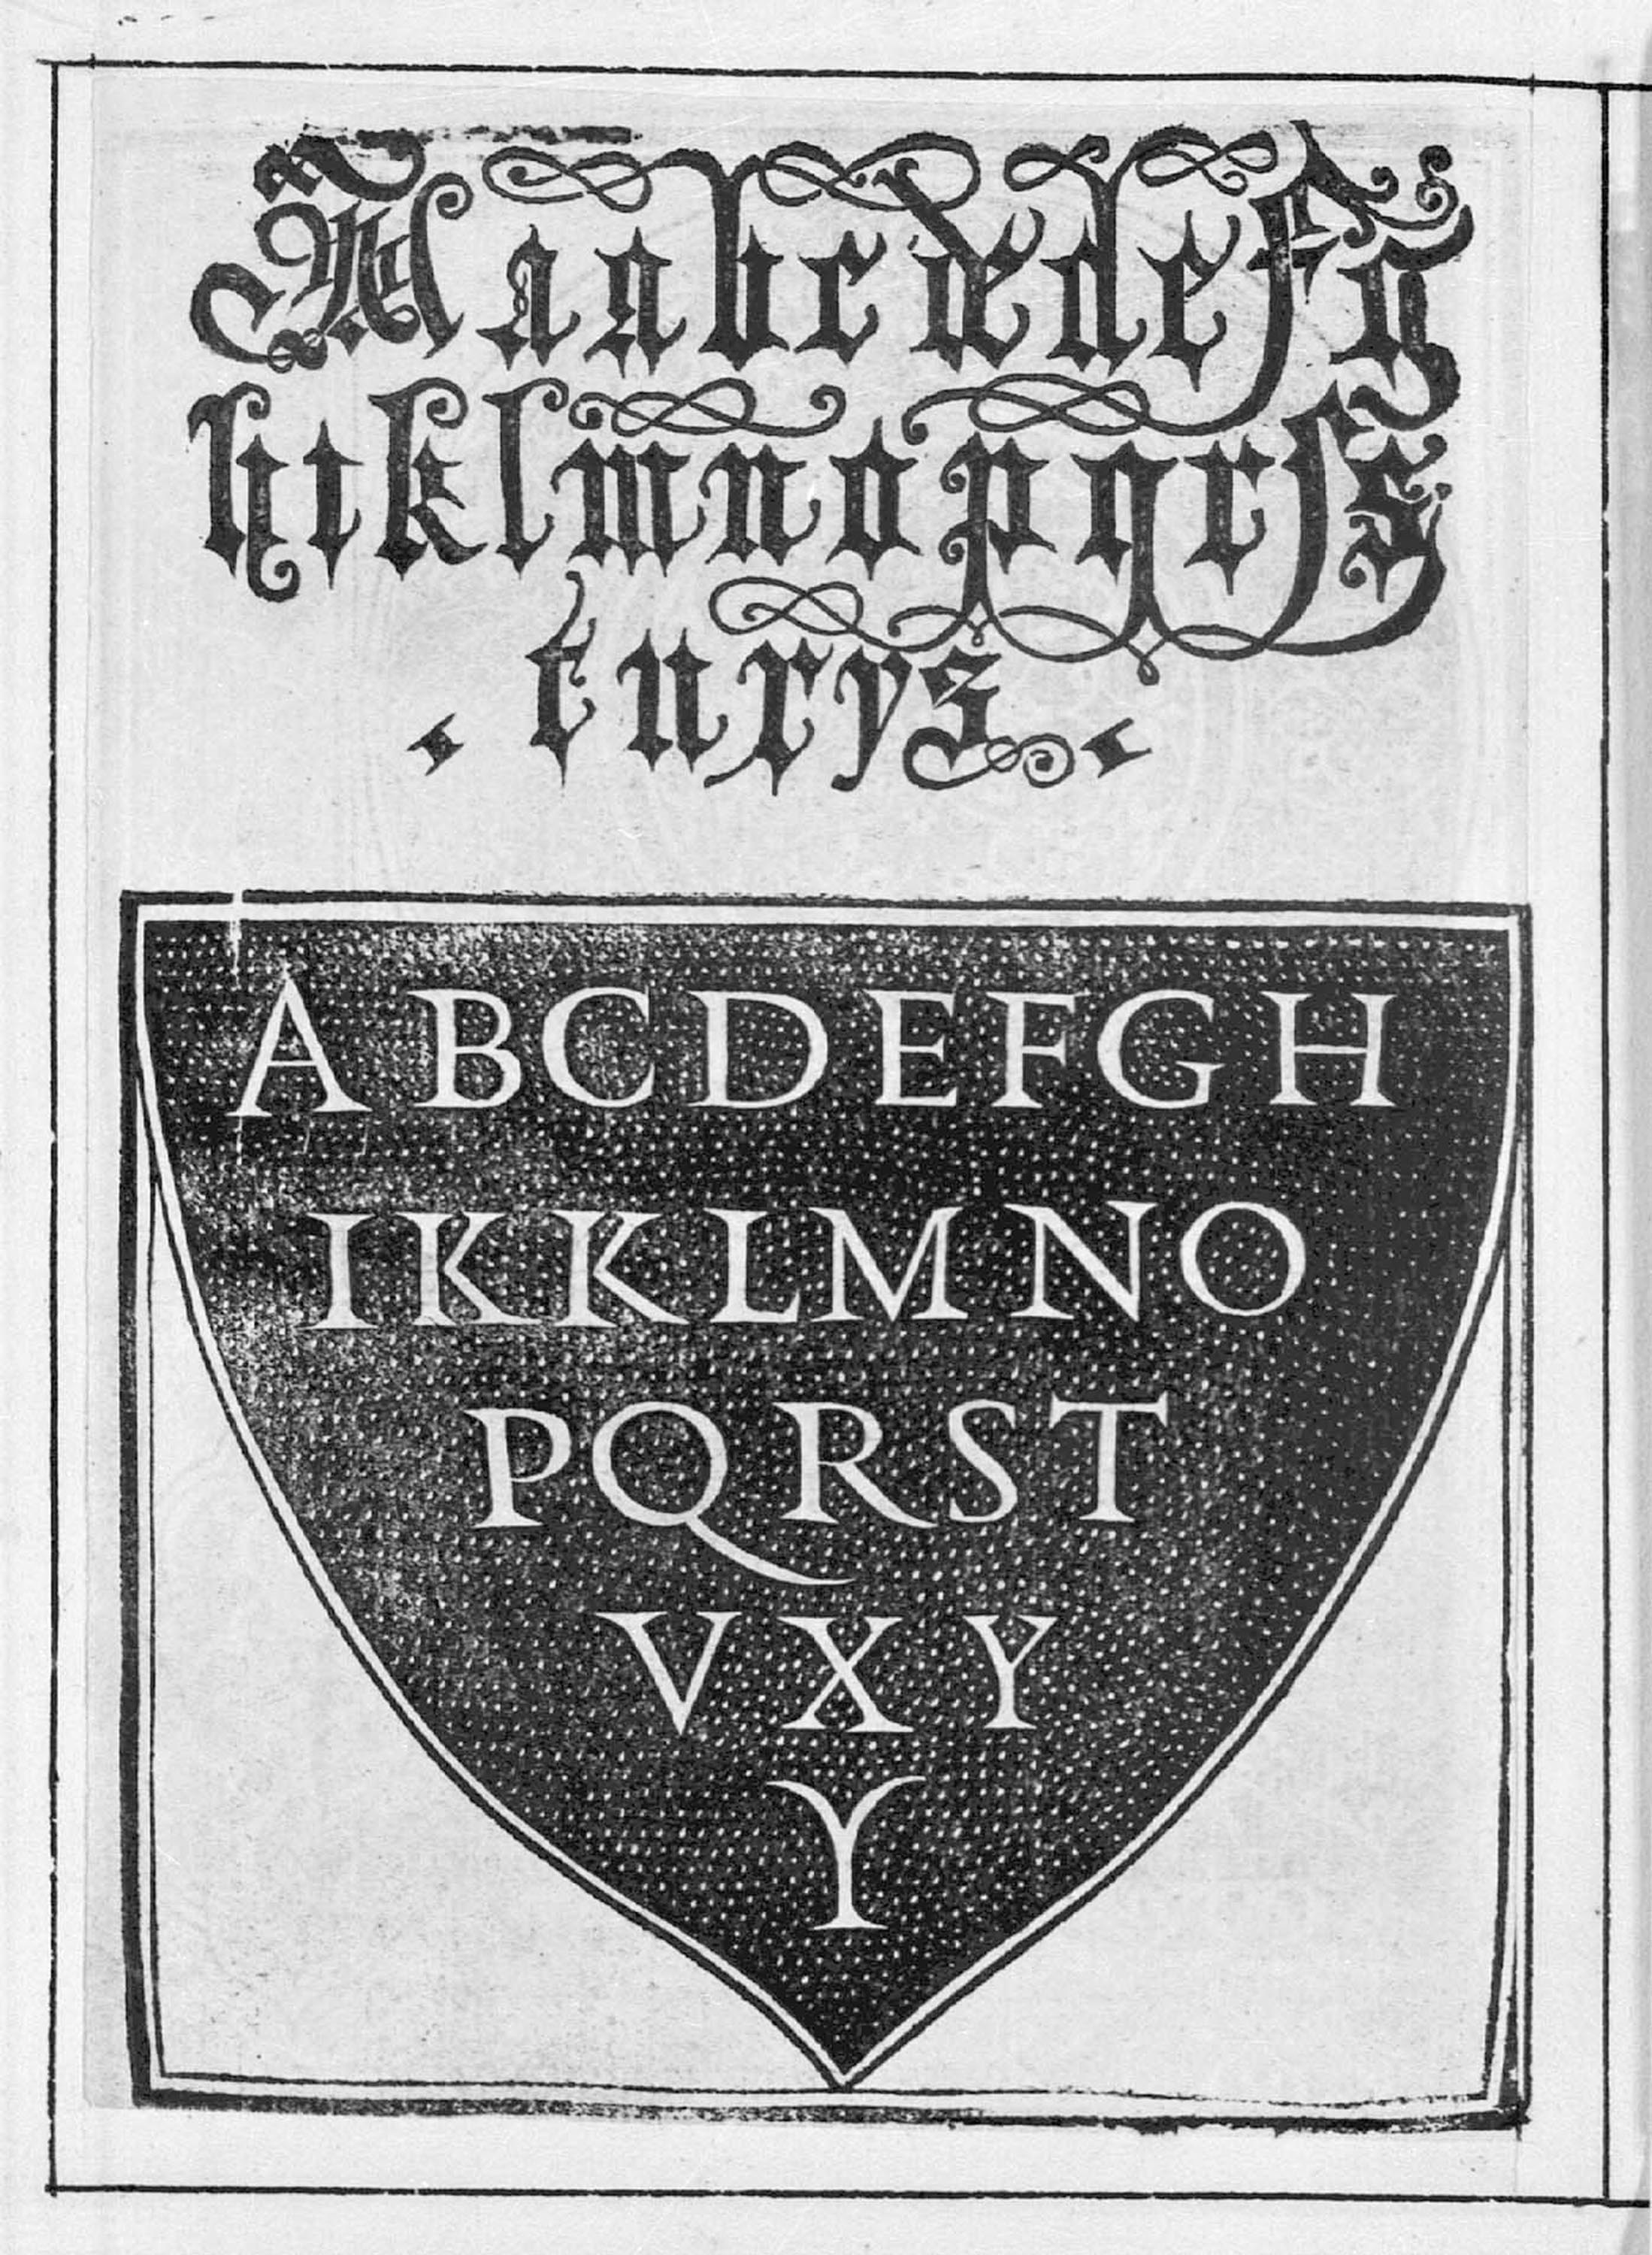 A a a b c d e d e f g
h i k l m n o p q r ſ s
. t u x y z .
A B C D E F G H
I K K L M N O
P Q R S T
V X Y
Y